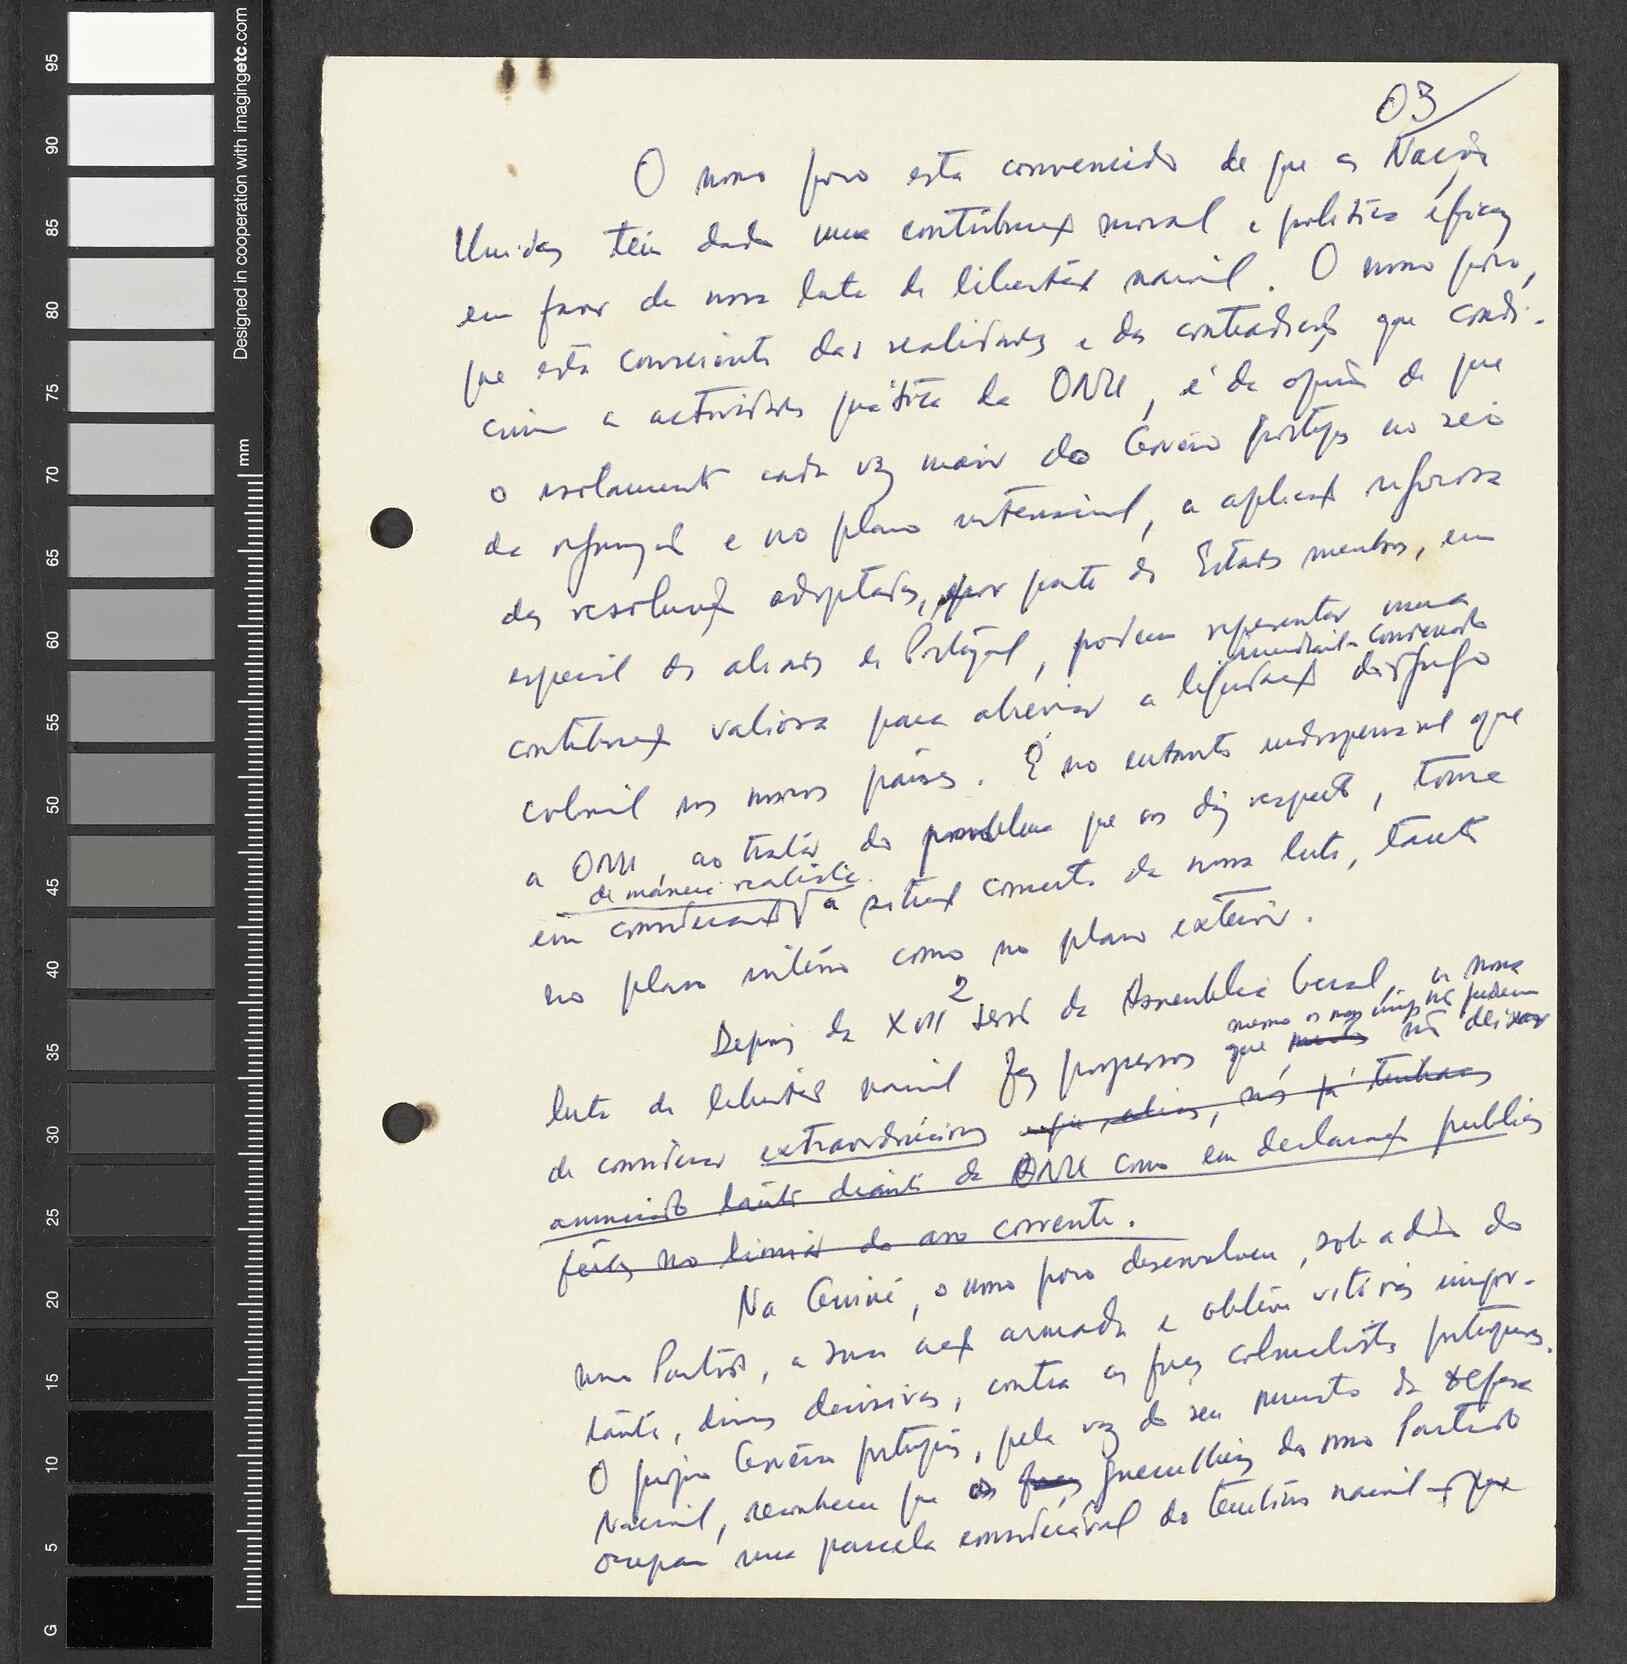 03
O nosso povo está convencido de que as Nações
Unidas têm dado uma contribuição moral e política eficaz
em favor da nossa luta de libertação nacional. O nosso povo,
que está consciente das realidades e das contradições que condi-
cionam a actividade prática da ONU, é da opinião de que
o isolamento cada vez maior do Governo português no seio
da organização e no plano internacional, a aplicação rigorosa
das resoluções adoptadas, por parte dos Estados membros, em
especial dos aliados de Portugal, podem representar uma
contribuição valiosa para abreviar a liquidação do jugo
colonial nos nossos países. É no entanto indispensável que
a ONU ao tratar do problema que nos diz respeito, tome
de maneira realista
em consideração a situação concreta da nossa luta, tanto
no plano interno como no plano exterior.
Depois da XVII sessão da Assembleia Geral, a nossa
luta de libertação nacional fez progressos que não deixar
de considerar extraordinários
anunciado tanto diante da ONU como em declarações públicas
feitas no limiar do ano corrente.
Na Guiné, o nosso povo desenvolveu, sob a direcção do
nosso Partido, a sua acção armada e obteve vitórias impor-
tantes, decisivas, contra as forças colonialistas portuguesas.
O próprio Governo português, pela voz do seu ministro da Defesa
Nacional, reconheceu que os guerrilheiros do nosso Partido
ocupam uma parcela considerável do território nacional que
95
90
85
80
75
70
65
60
55
50
45
40
35
30
25
20
15
10
5
G
mm
Designed in cooperation with imagingetc.com